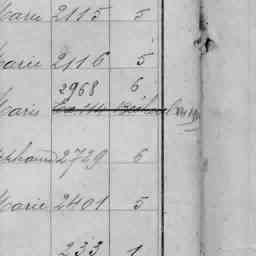 Marie 2115 5
Marie 2116 5
2968 6
Marie
2729 6
Marie 2401 5
233 1